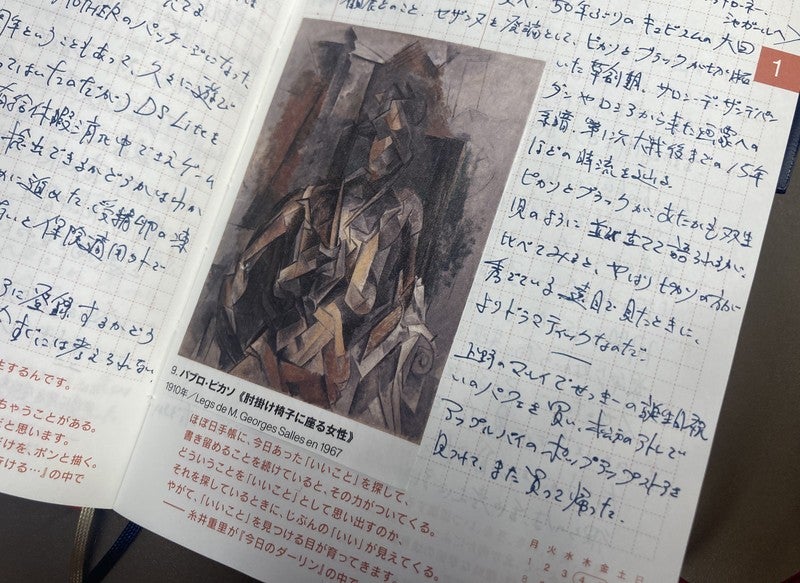 てる。
MOTHERのパッケージになった
周年ということもあって、久々に遊んで
ってはいたのだが) DS Liteを
有給休暇消化中でさえゲーム
捻出できるかどうかはわか
に進めた。受精卵の凍
ないと保険適用外で
に登録するかどう
すには考えられない
生するんです。
ちゃうことがある。
だと思います。
だけを、ポンと描く。
ける…』の中で
シャガールへ
のこと、セザンヌを序論として、ピカソとブラックが
50年ぶりのキュビスムの大回
いた草創期、サロン・デ・ザンデパン
ダンやロシアから来た画家への
第1次大戦後までの15年
ほどの時流を辿る。
ピカソとブラックが、あたかも双生
児のように並び立てて語られるが、
比べてみると、やはりピカソの方が
秀でている。遠目で見たときに、
よりドラマティックなのだ。
上野のマレイでせっきーの誕生日祝
いのパフェを買い、
アップルパイのポップアップストアを
見つけて、また買って帰った。
1
9. パブロ・ピカソ《肘掛け椅子に座る女性》
1910年／Legs de M. Georges Salles en 1967
ほぼ日手帳に、今日あった「いいこと」を探して、
書き留めることを続けていると、その力がついてくる。
どういうことを「いいこと」として思い出すのか、
それを探しているときに、じぶんの「いい」が見えてくる。
やがて、「いいこと」を見つける目が育ってきます。
―― 糸井重里が『今日のダーリン』の中で
月 火 水 木 金 土 日
1 2 3 4